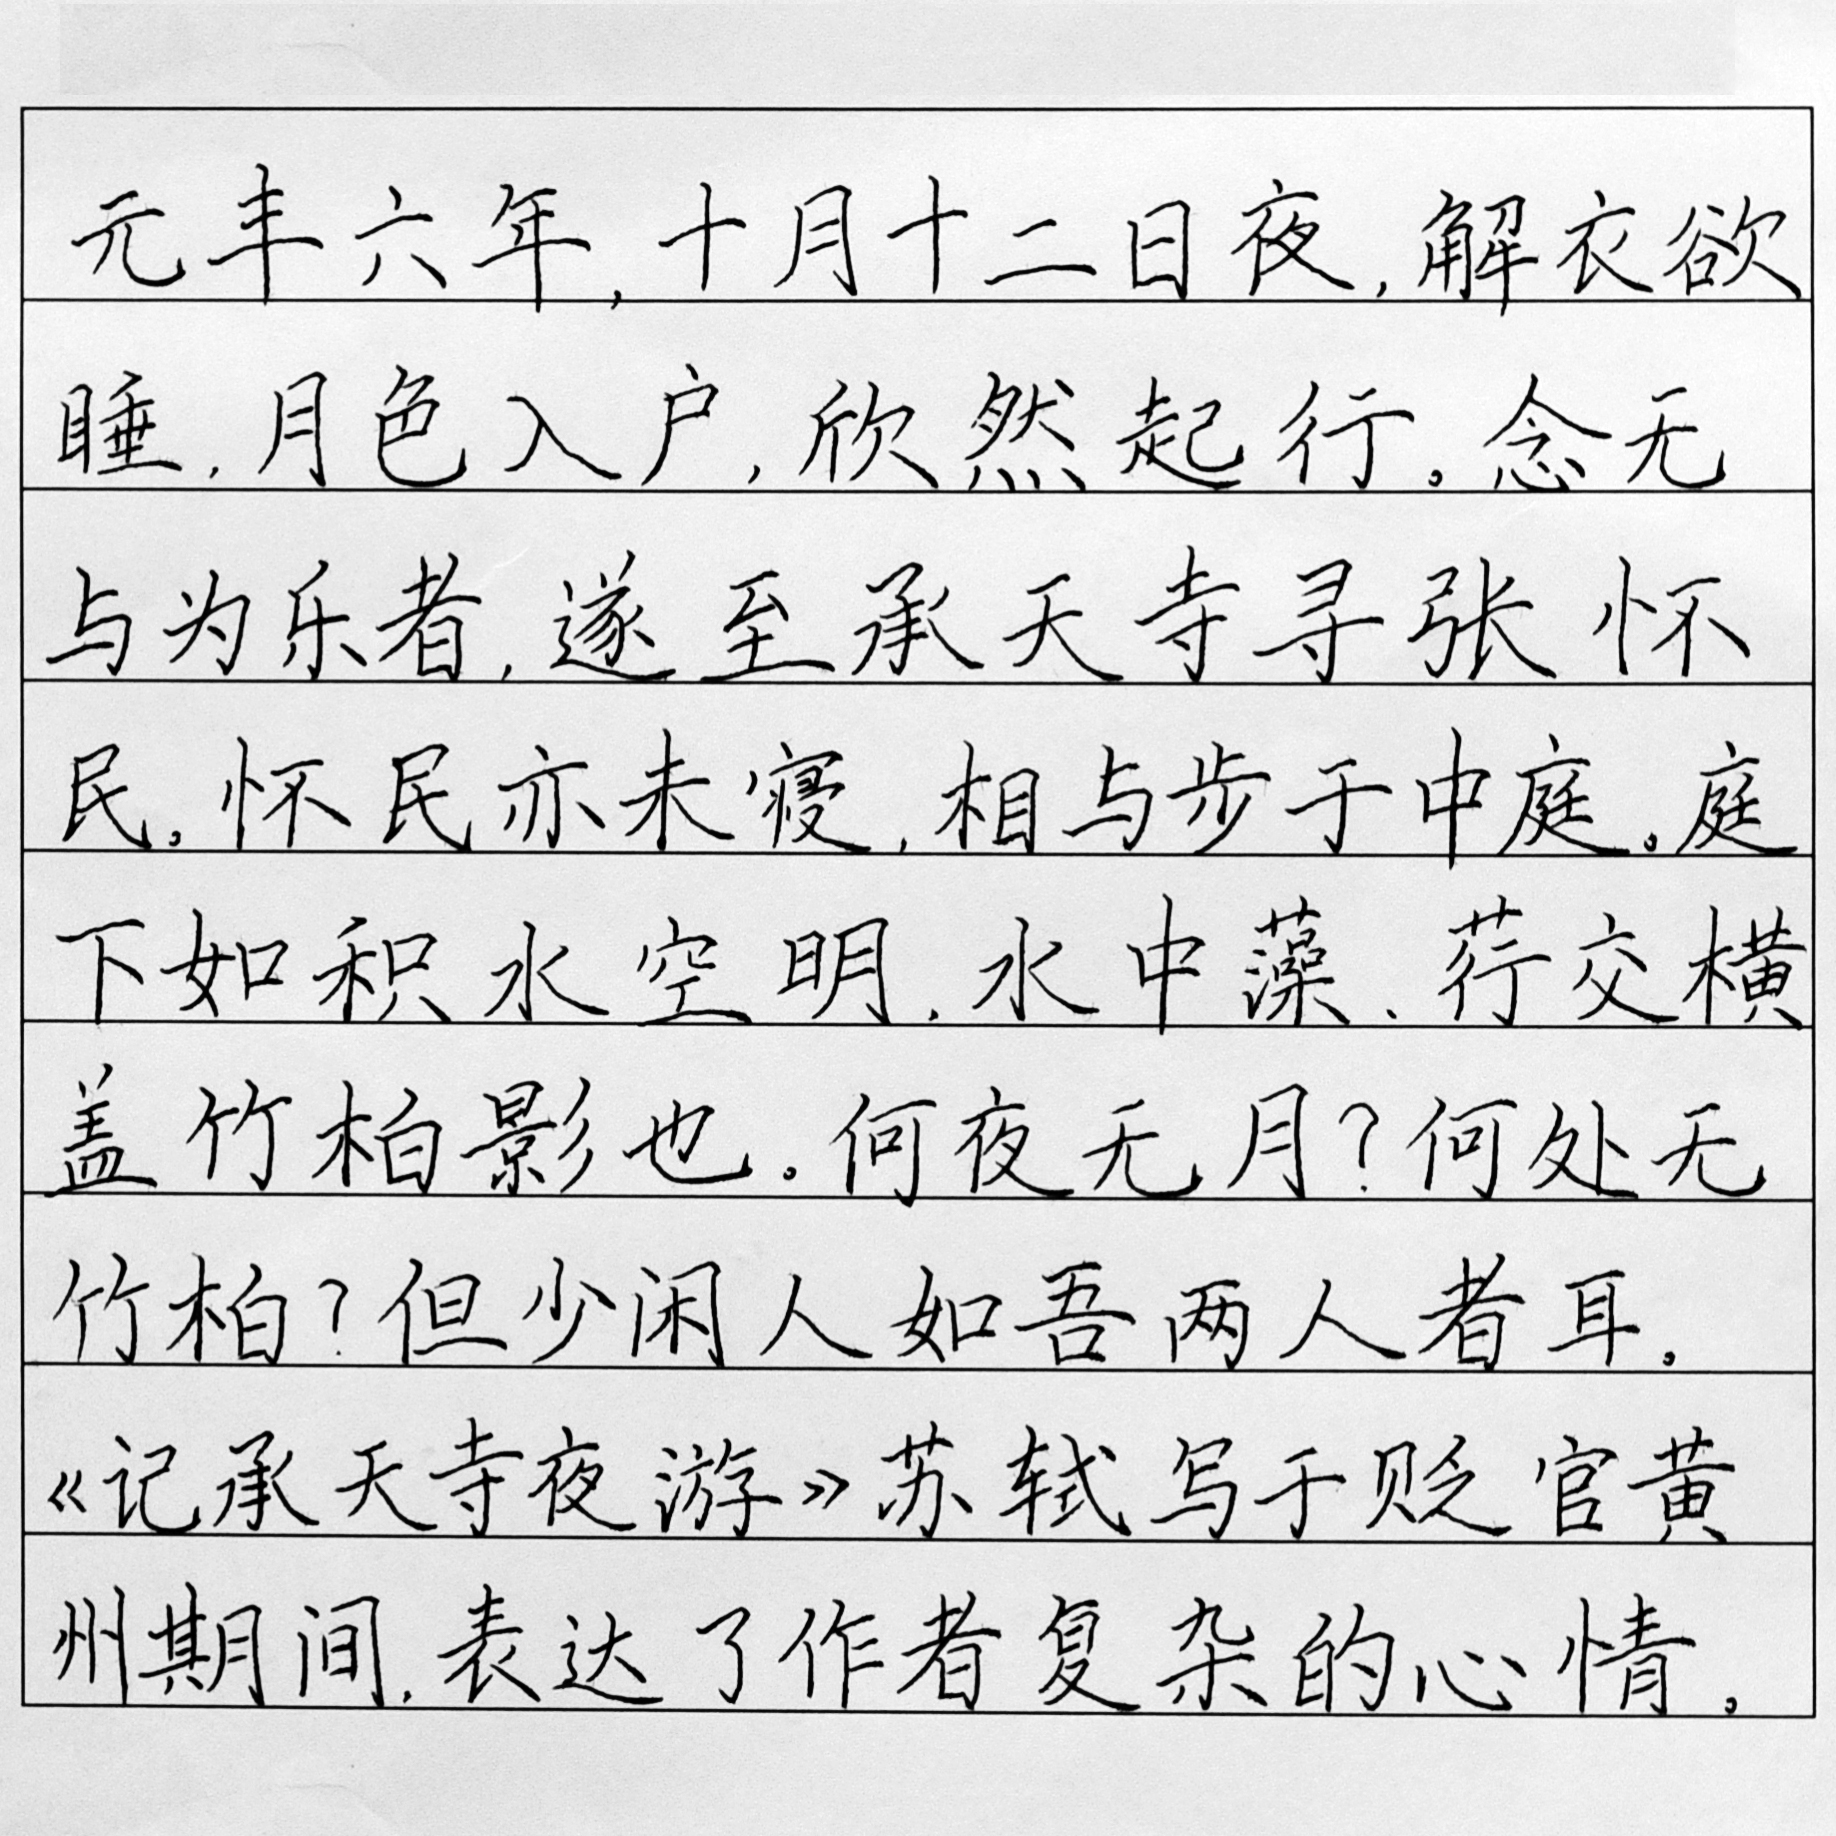 元丰六年,十月十二日夜,解衣欲
睡,月色入户,欣然起行。念无
与为乐者,遂至承天寺寻张怀
民。怀民亦未寝,相与步于中庭。庭
下如积水空明,水中藻、荇交横
盖竹柏影也。何夜无月?何处无
竹柏?但少闲人如吾两人者耳。
《记承天寺夜游》苏轼写于贬官黄
州期间,表达了作者复杂的心情。